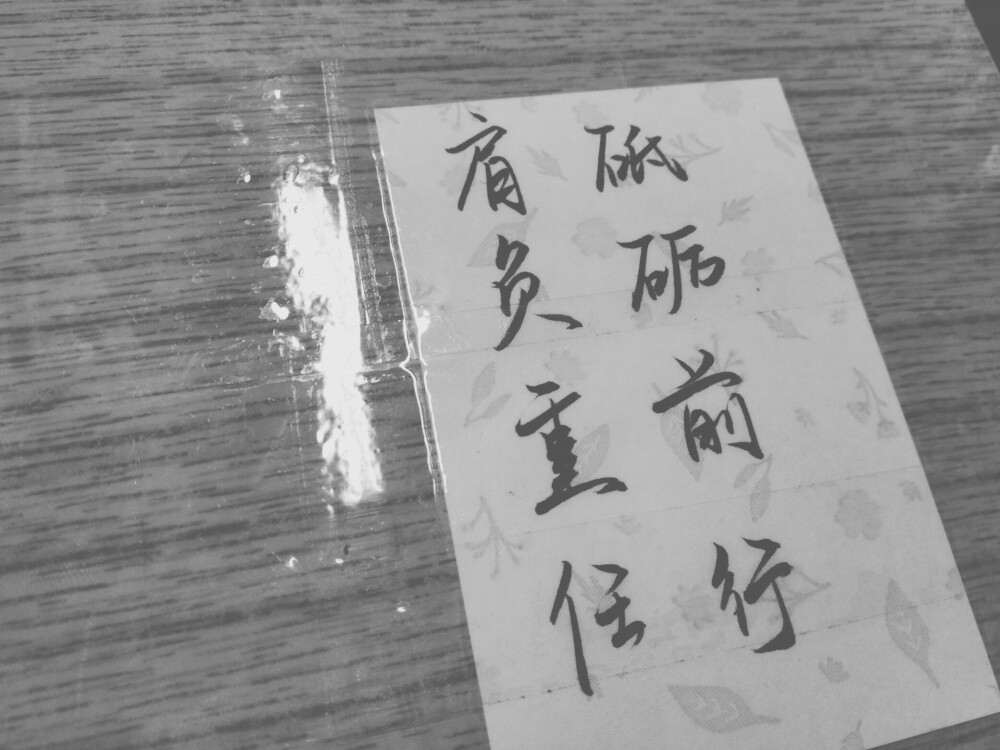 砥砺前行
肩负重任